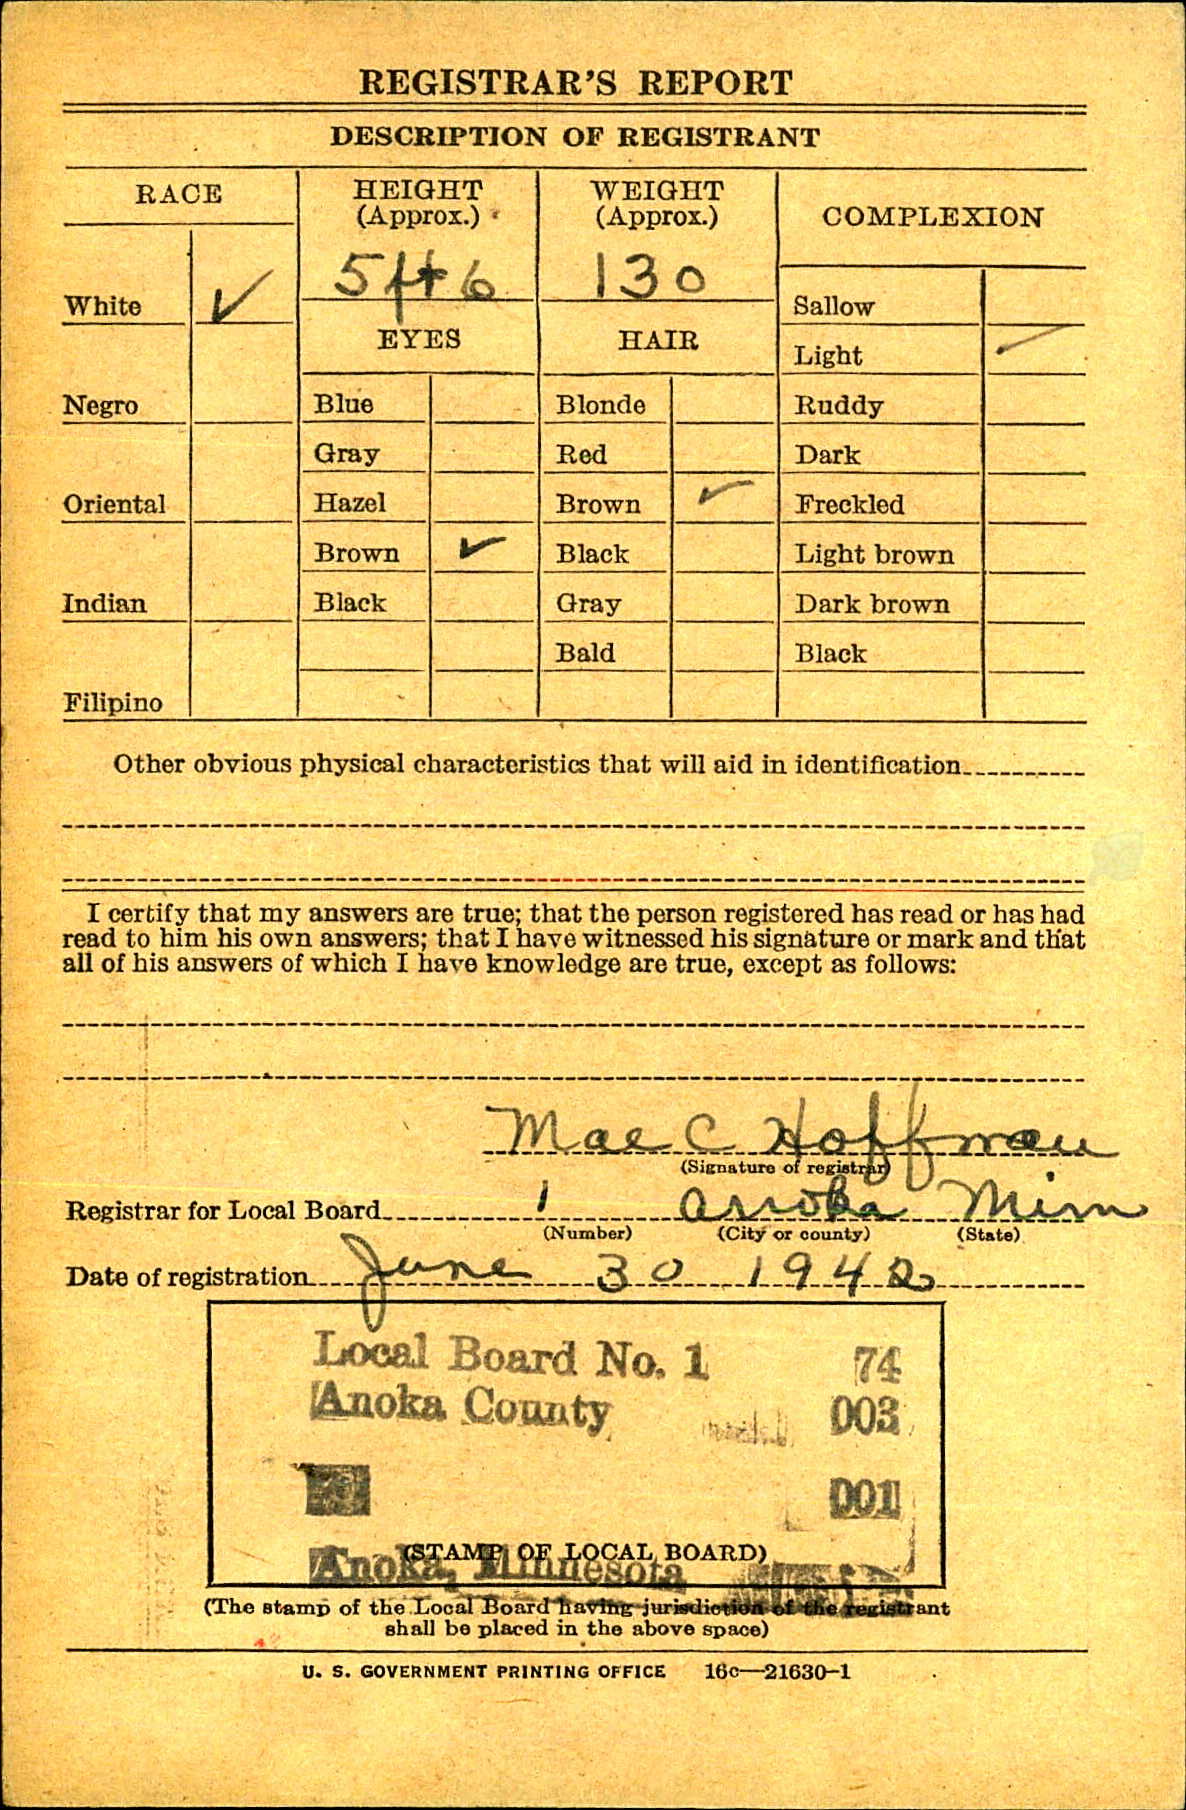 REGISTRAR'S REPORT
DESCRIPTION OF REGISTRANT
RACE
HEIGHT
(Approx.)
WEIGHT
(Approx.)
COMPLEXION
5 ft 6
130
White ✓
Sallow
EYES
HAIR
Light ✓
Negro
Blue
Blonde
Ruddy
Gray
Red
Dark
Oriental
Hazel
Brown ✓
Freckled
Brown ✓
Black
Light brown
Indian
Black
Gray
Dark brown
Bald
Black
Filipino
Other obvious physical characteristics that will aid in identification
I certify that my answers are true; that the person registered has read or has had
read to him his own answers; that I have witnessed his signature or mark and that
all of his answers of which I have knowledge are true, except as follows:
Mae C Hoffman
(Signature of registrar)
Registrar for Local Board 1 Anoka Minn
(Number) (City or county) (State)
Date of registration June 30 1942
Local Board No. 1 74
Anoka County 003
001
(STAMP OF LOCAL BOARD)
Anoka, Minnesota
(The stamp of the Local Board having jurisdiction of the registrant
shall be placed in the above space)
U. S. GOVERNMENT PRINTING OFFICE 16c—21630-1